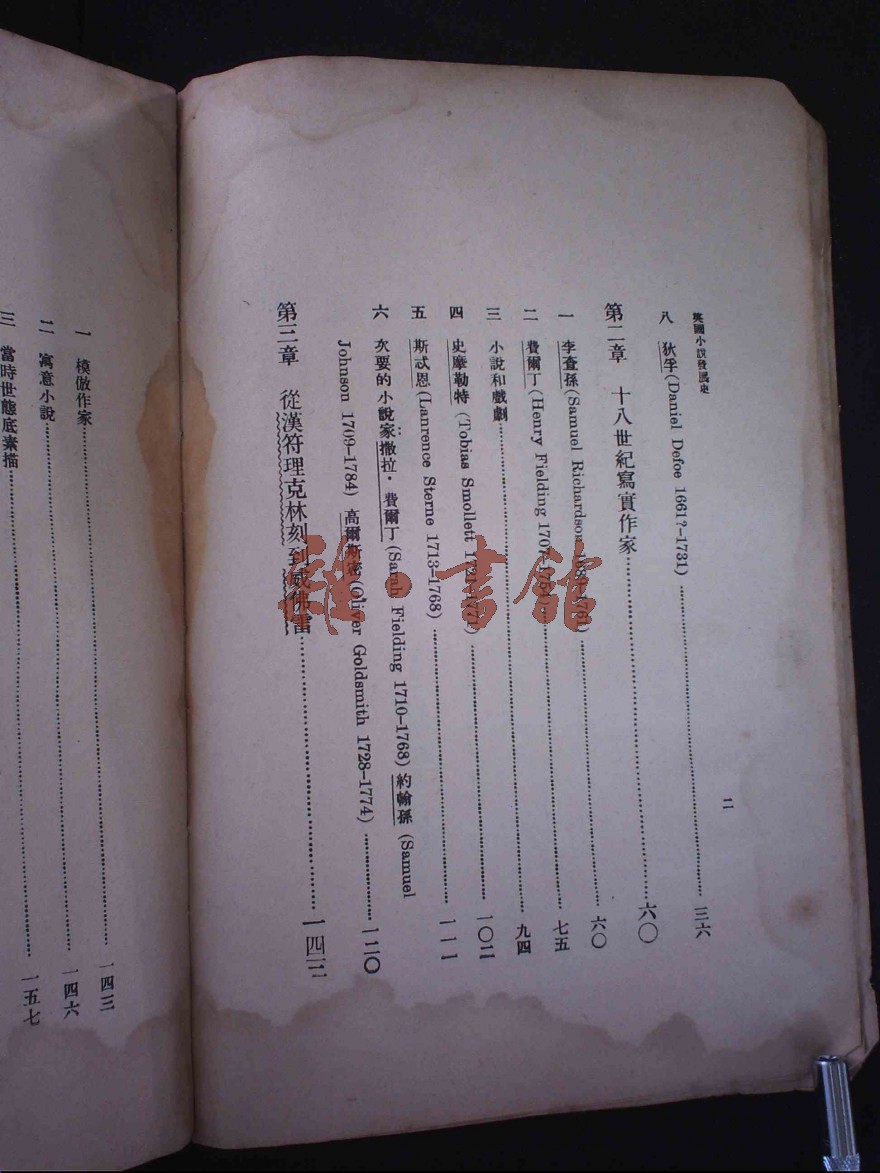 英國小說發展史
二
八 狄孚(Daniel Defoe 1661?–1731)……三六
第二章 十八世紀寫實作家……六〇
一 李查孫(Samuel Richardson 1689–1761)……六〇
二 費爾丁(Henry Fielding 1707–1754)……七五
三 小說和戲劇……九四
四 史摩勒特(Tobias Smollett 1721–1771)……一〇二
五 斯忒恩(Lanrence Sterne 1713–1768)……一一一
六 次要的小說家:撒拉·費爾丁(Sarah Fielding 1710–1768)約翰孫(Samuel
Johnson 1709–1784)高爾斯密(Oliver Goldsmith 1728–1774)……一二〇
第三章 從漢符理克林刻到威佛雷……一四三
一 模倣作家……一四三
二 寓意小說……一四六
三 當時世態底素描……一五七
雅·書館